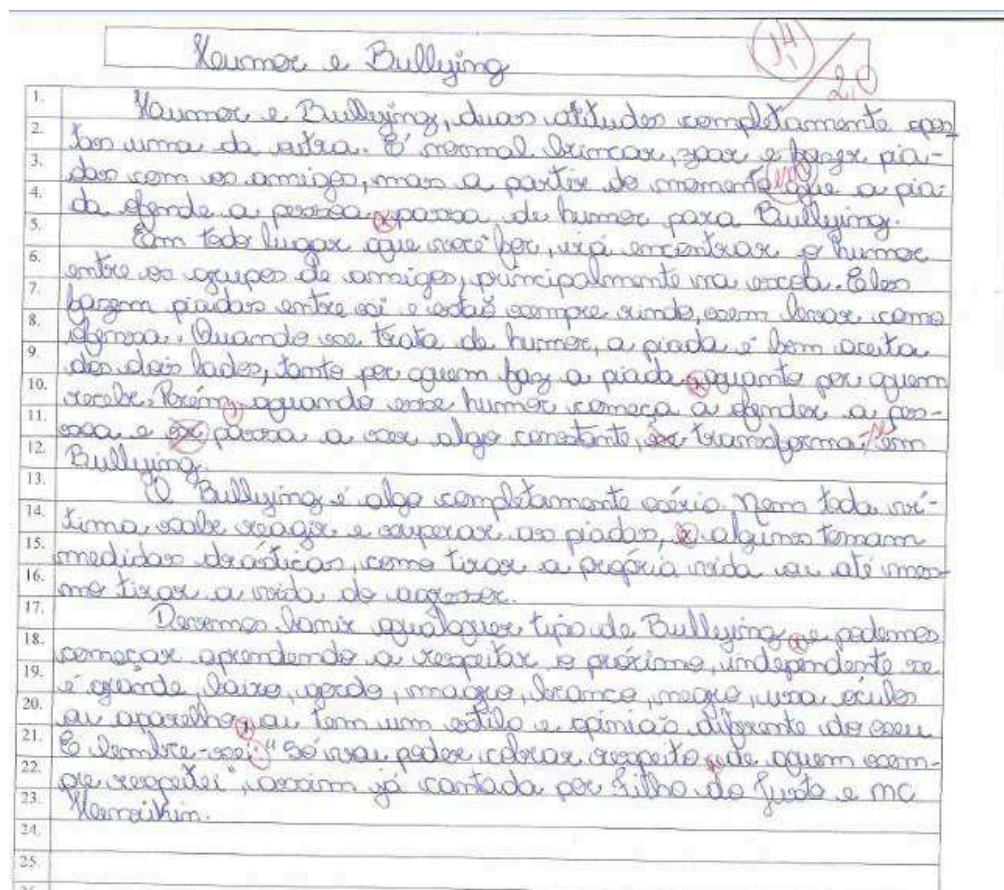 Humor e Bullying
1,4
2,0
1. Humor e Bullying, duas atitudes completamente opos-
2. tas uma da outra. É normal brincar, zoar e fazer pia-
3. das com os amigos, mas a partir do momento (em) que a pia-
4. da ofende a pessoa, passa de humor para Bullying.
5. Em todo lugar que você for, irá encontrar o humor
6. entre os grupos de amigos, principalmente na escola. Eles
7. fazem piadas entre si e estão sempre rindo, sem levar como
8. ofensa. Quando se trata de humor, a piada é bem aceita
9. dos dois lados, tanto por quem faz a piada, quanto por quem
10. recebe. Porém, quando esse humor começa a ofender a pes-
11. soa e se passa a ser algo constante, se transforma-se em
12. Bullying.
13. O Bullying é algo completamente sério. Nem toda ví-
14. tima sabe reagir e superar as piadas, e alguns tomam
15. medidas drásticas, como tirar a própria vida ou até mes-
16. mo tirar a vida do agressor.
17. Devemos banir qualquer tipo de Bullying, e podemos
18. começar aprendendo a respeitar o próximo, independente se
19. é grande, baixo, gordo, magro, branco, negro, usa óculos
20. ou aparelho, ou tem um estilo e opinião diferente do seu
21. E lembre-se: "Só vou poder cobrar respeito de quem sem-
22. pre respeitei", assim já cantada por Filho do Justo e MC
23.
24.
25.